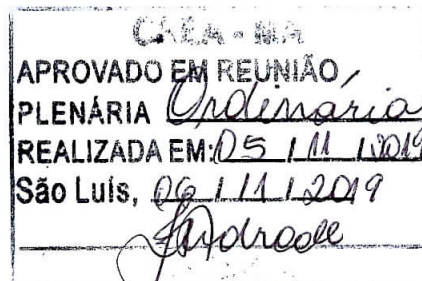 CREA - MA
APROVADO EM REUNIÃO
PLENÁRIA Ordinária
REALIZADA EM: 05 / 11 / 2019
São Luís, 06 / 11 / 2019
Andrade